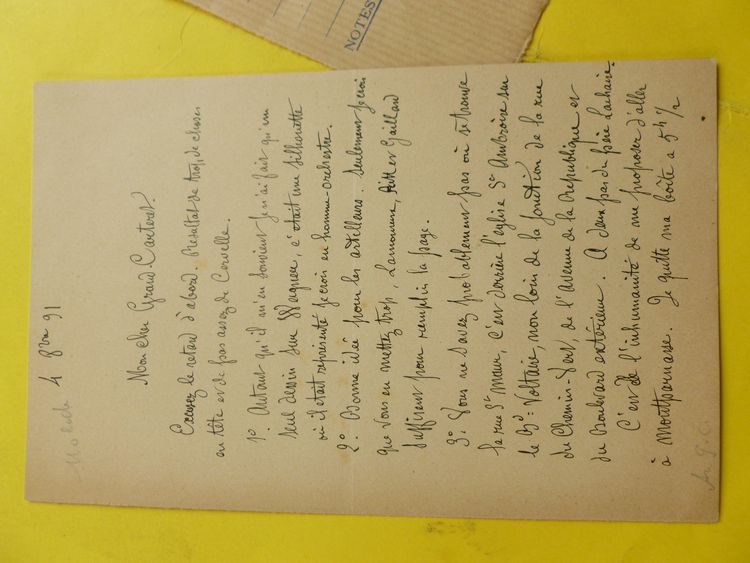 NOTES
Moloch
4 8bre 91
Mon cher Grand Carteret.
Excusez le retard d'abord. Résultat de trop de choses
en tête et de pas assez de Cervelle.
1º. Autant qu'il m'en souvient je n'ai fait qu'un
seul dessin sur Wagner, c'était une silhouette
où il était représenté je crois en homme-orchestre.
2º. Bonne idée pour les artilleurs. Seulement je crois
que vous en mettez trop, Lamoureux, et Gaillard
suffisent pour remplir la page.
3º. Vous ne savez probablement pas où se trouve
la rue St Maur, c'est derrière l'église St Ambroise sur
le Bd Voltaire, non loin de la jonction de la rue
du Chemin-Vert, de l'Avenue de la République et
du Boulevard extérieur. A deux pas du père Lachaise.
C'est de l'inhumanité de me proposer d'aller
à Montparnasse. Je quitte ma boîte à 5h 1/2